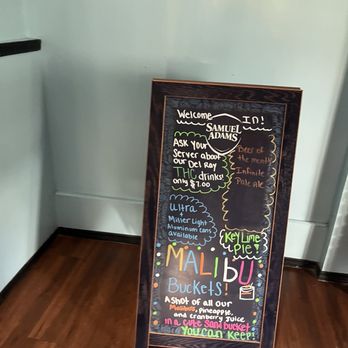 Welcome In!
SAMUEL
ADAMS
Ask Your
Server about
our Del Ray
THC drinks!
only $7.00
Beer of
the month
Infinite
Pale ale
Ultra +
Miller Light
Aluminum cans
available
Key Lime
Pie!
MALIBU
Buckets!
A shot of all our
Malibus, pineapple,
and cranberry juice
in a cute sand bucket
you can keep!